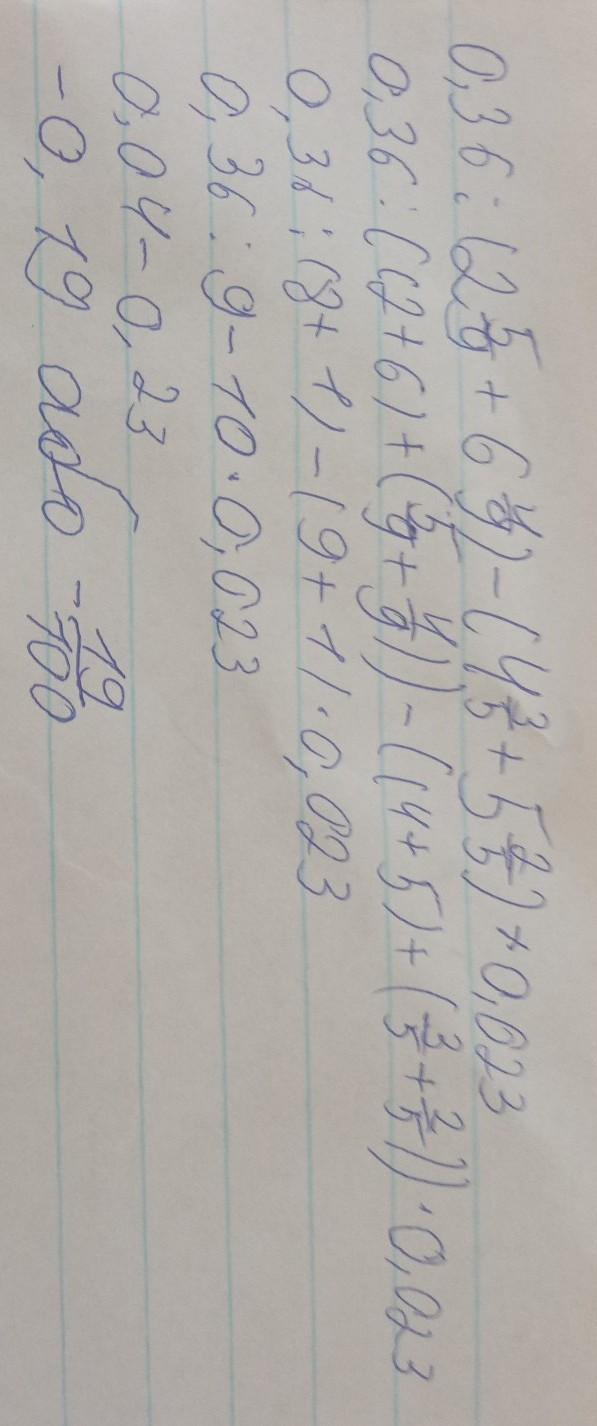 0,36 : (2 5/9 + 6 4/9) - (4 3/5 + 5 2/5) × 0,023
0,36 : ((2 + 6) + (5/9 + 4/9)) - ((4 + 5) + (3/5 + 2/5)) · 0,023
0,36 : (8 + 1) - (9 + 1) · 0,023
0,36 : 9 - 10 · 0,023
0,04 - 0,23
-0,19 або -19/100